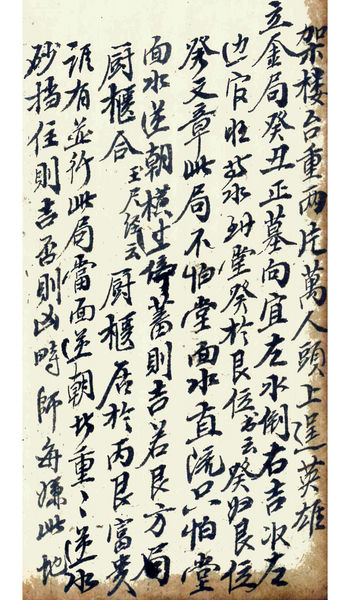 架楼台重两片萬人頭上逞英雄
立金局癸丑正墓向宜左水倒右吉收左
边官旺水到堂癸於艮位書云癸归艮位
發文章此局不怕堂面水直流只怕堂
面水逆朝橫过停蓄則吉若艮方局
厨櫃合玉尺经云厨櫃居於丙艮富貴
誰有並行此局當面逆朝廿重〻逆水
砂挡住則吉否則凶時師每嫌此地